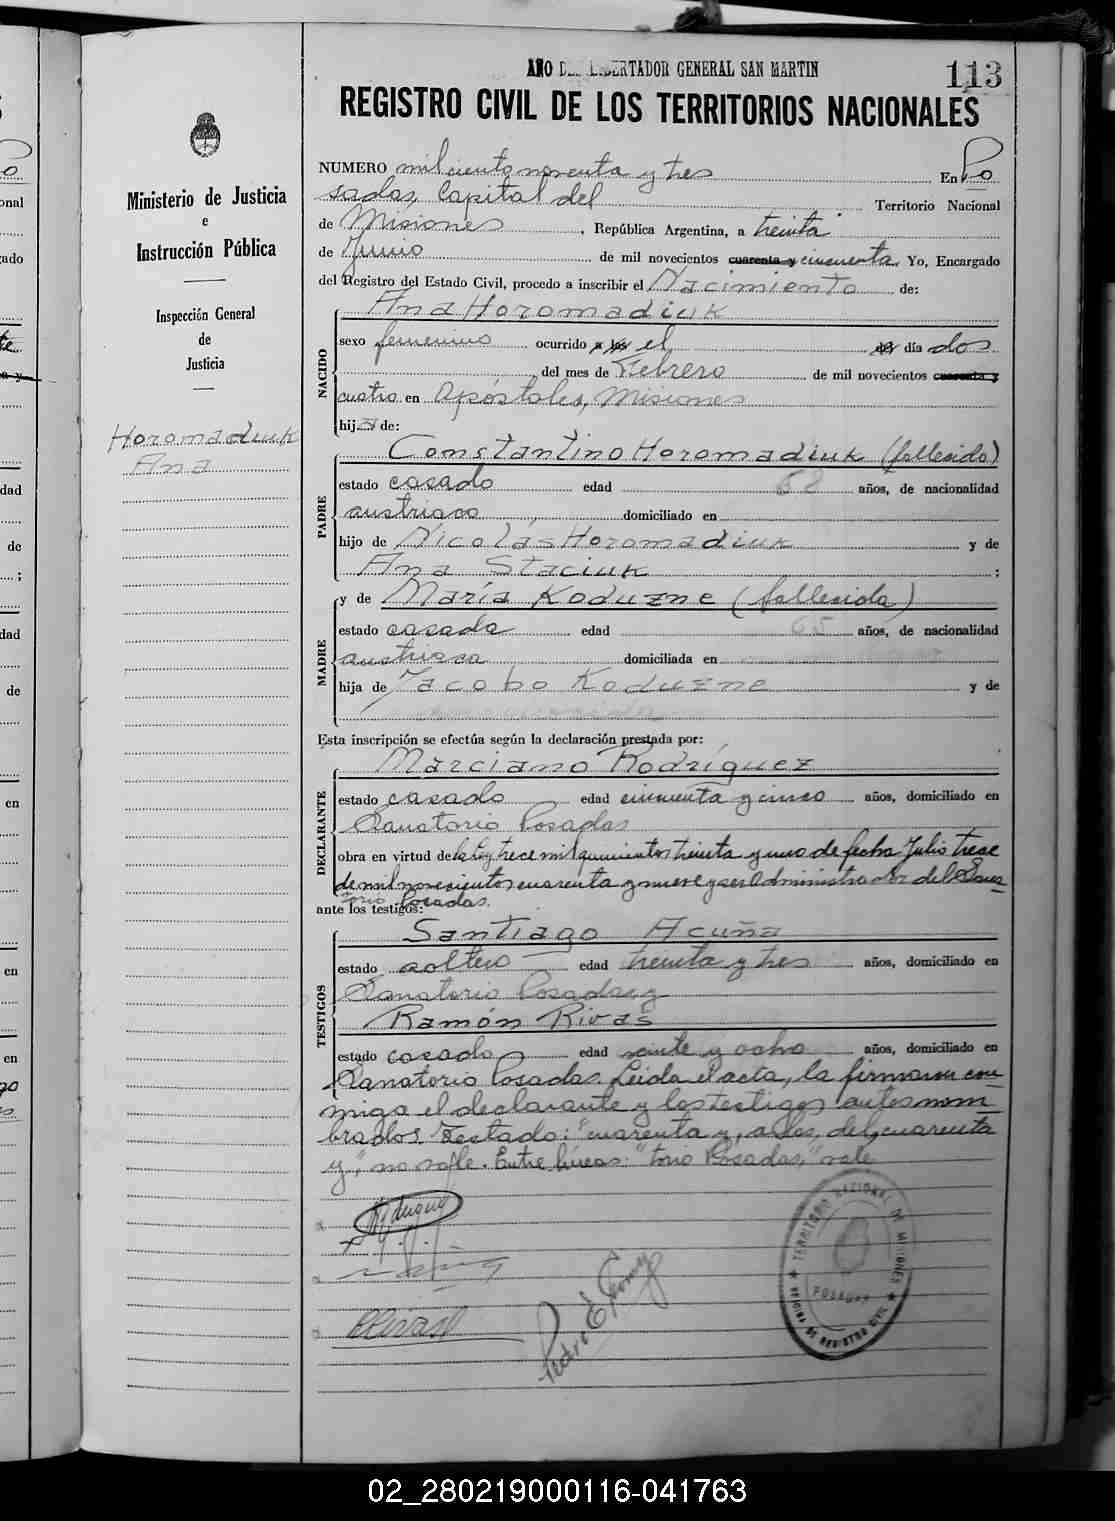 AÑO DEL LIBERTADOR GENERAL SAN MARTIN
113
REGISTRO CIVIL DE LOS TERRITORIOS NACIONALES
Ministerio de Justicia
e
Instrucción Pública
Inspección General
de
Justicia
Horomadiuk
Ana
NUMERO mil ciento noventa y tres En Po
sadas, Capital del Territorio Nacional
de Misiones, República Argentina, a treinta
de Junio de mil novecientos cuarenta y cincuenta. Yo, Encargado
del Registro del Estado Civil, procedo a inscribir el Nacimiento de:
NACIDO
Ana Horomadiuk
sexo femenino ocurrido a las el del día dos
del mes de Febrero de mil novecientos cuarenta y
cuatro en Apóstoles, Misiones
hija de:
PADRE
Constantino Horomadiuk (fallecido)
estado casado edad 68 años, de nacionalidad
austriaco domiciliado en
hijo de Nicolás Horomadiuk y de
Ana Staciuk ;
MADRE
y de María Koduzne (fallecida)
estado casada edad 65 años, de nacionalidad
austriaca domiciliada en
hija de Jacobo Koduzne y de
Esta inscripción se efectúa según la declaración prestada por:
DECLARANTE
Marciano Rodríguez
estado casado edad cincuenta y cinco años, domiciliado en
Sanatorio Posadas
obra en virtud de la Ley trece mil quinientos treinta y uno de fecha Julio trece
de mil novecientos cuarenta y nueve y ser Administrador del Sana
torio Posadas.
ante los testigos:
TESTIGOS
Santiago Acuña
estado soltero edad treinta y tres años, domiciliado en
Sanatorio Posadas y
Ramón Rivas
estado casado edad veinte y ocho años, domiciliado en
Sanatorio Posadas. Leída el acta, la firmaron con
migo el declarante y los testigos antes nom
brados. Testado: "cuarenta y, a las, del, cuarenta
y," no vale. Entre líneas: "torio Posadas," vale
RRivas
Pedro E Gomez
TERRITORIO NACIONAL DE MISIONES
POSADAS
OFICINA DE REGISTRO CIVIL
02_280219000116-041763